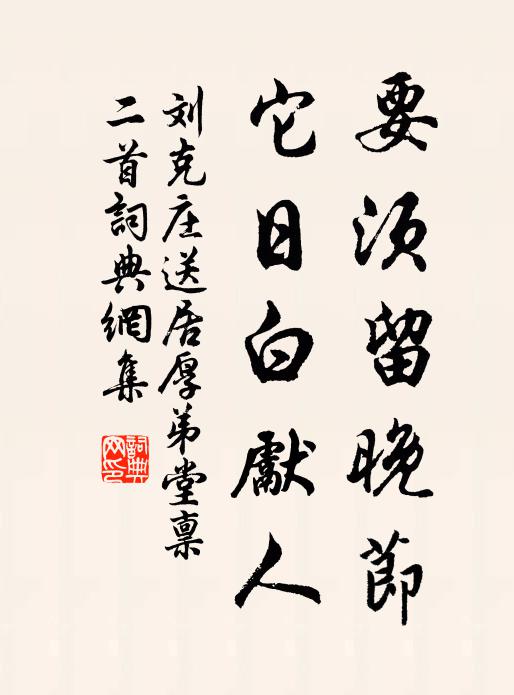 要须留晚節
它日白獻人
刘克庄送居厚弟堂稟
二首詞典網集
詞典网印